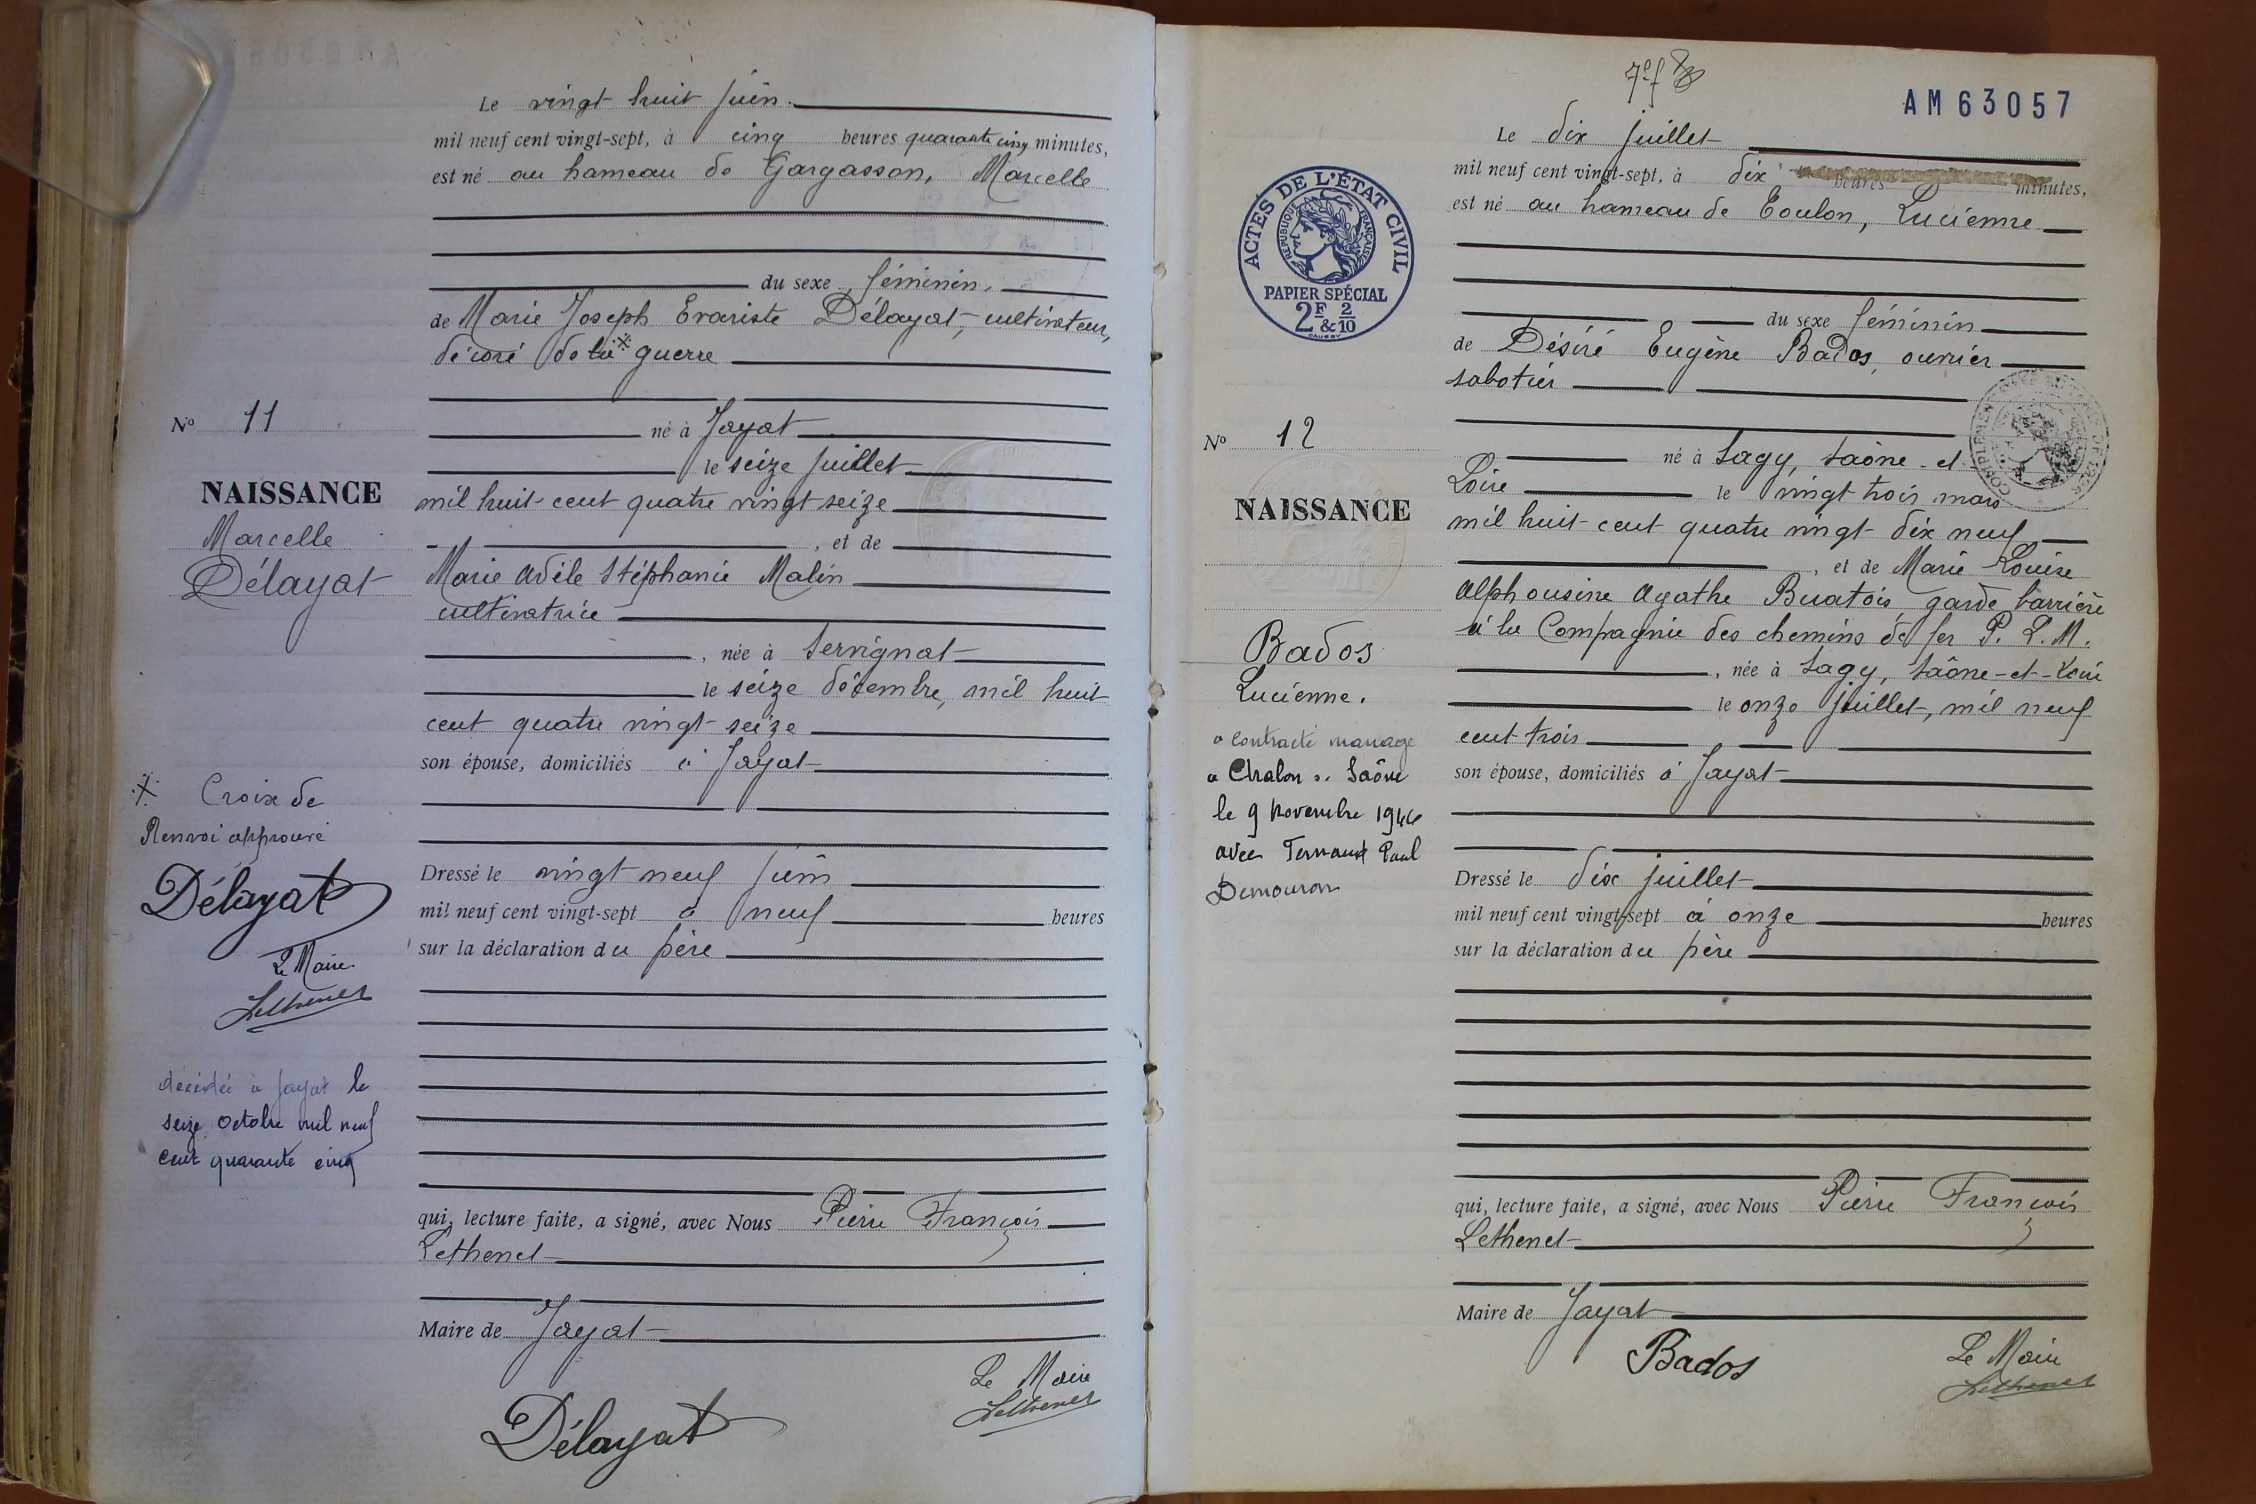 Le vingt huit juin.
mil neuf cent vingt-sept, à cinq heures quarante cinq minutes,
est né au hameau de Gargasson, Marcelle
du sexe féminin.
de Marie Joseph Evariste Délayat, cultivateur,
décoré de la guerre
né à Jayat
le seize juillet
mil huit cent quatre vingt seize
, et de
Marie Adèle Stéphanie Malin
cultivatrice
, née à Servignat
le seize décembre, mil huit
cent quatre vingt seize
son épouse, domiciliés à Jayat
Dressé le vingt neuf juin
mil neuf cent vingt-sept à neuf heures
sur la déclaration du père
qui, lecture faite, a signé, avec Nous Pierre François
Lethenet
Maire de Jayat
Le Maire
Lethenet
Délayat
No 11
NAISSANCE
Marcelle
Délayat
Croix de
Renvoi approuvé
Délayat
Le Maire
Lethenet
décédée à Jayat le
seize octobre mil neuf
cent quarante cinq
AM63057
Le dix juillet
mil neuf cent vingt-sept, à dix heures minutes,
est né au hameau de Toulon, Lucienne
du sexe féminin
de Désiré Eugène Bados, ouvrier
sabotier
né à Sagy, Saône-et-
Loire le vingt trois mars
mil huit cent quatre vingt dix neuf
, et de Marie Louise
Alphonsine Agathe Buatois garde barrière
à la Compagnie des chemins de fer P. L. M.
, née à Sagy, Saône-et-Loire
le onze juillet, mil neuf
cent trois
son épouse, domiciliés à Jayat
Dressé le dix juillet
mil neuf cent vingt-sept à onze heures
sur la déclaration du père
qui, lecture faite, a signé, avec Nous Pierre François
Lethenet
Maire de Jayat
Bados
Le Maire
Lethenet
ACTES DE L'ÉTAT CIVIL
RÉPUBLIQUE FRANÇAISE
PAPIER SPÉCIAL
2F & 2/10
No 12
NAISSANCE
Bados
Lucienne.
a contracté mariage
a Chalon s. Saône
le 9 Novembre 1946
avec Fernand Paul
Demouron